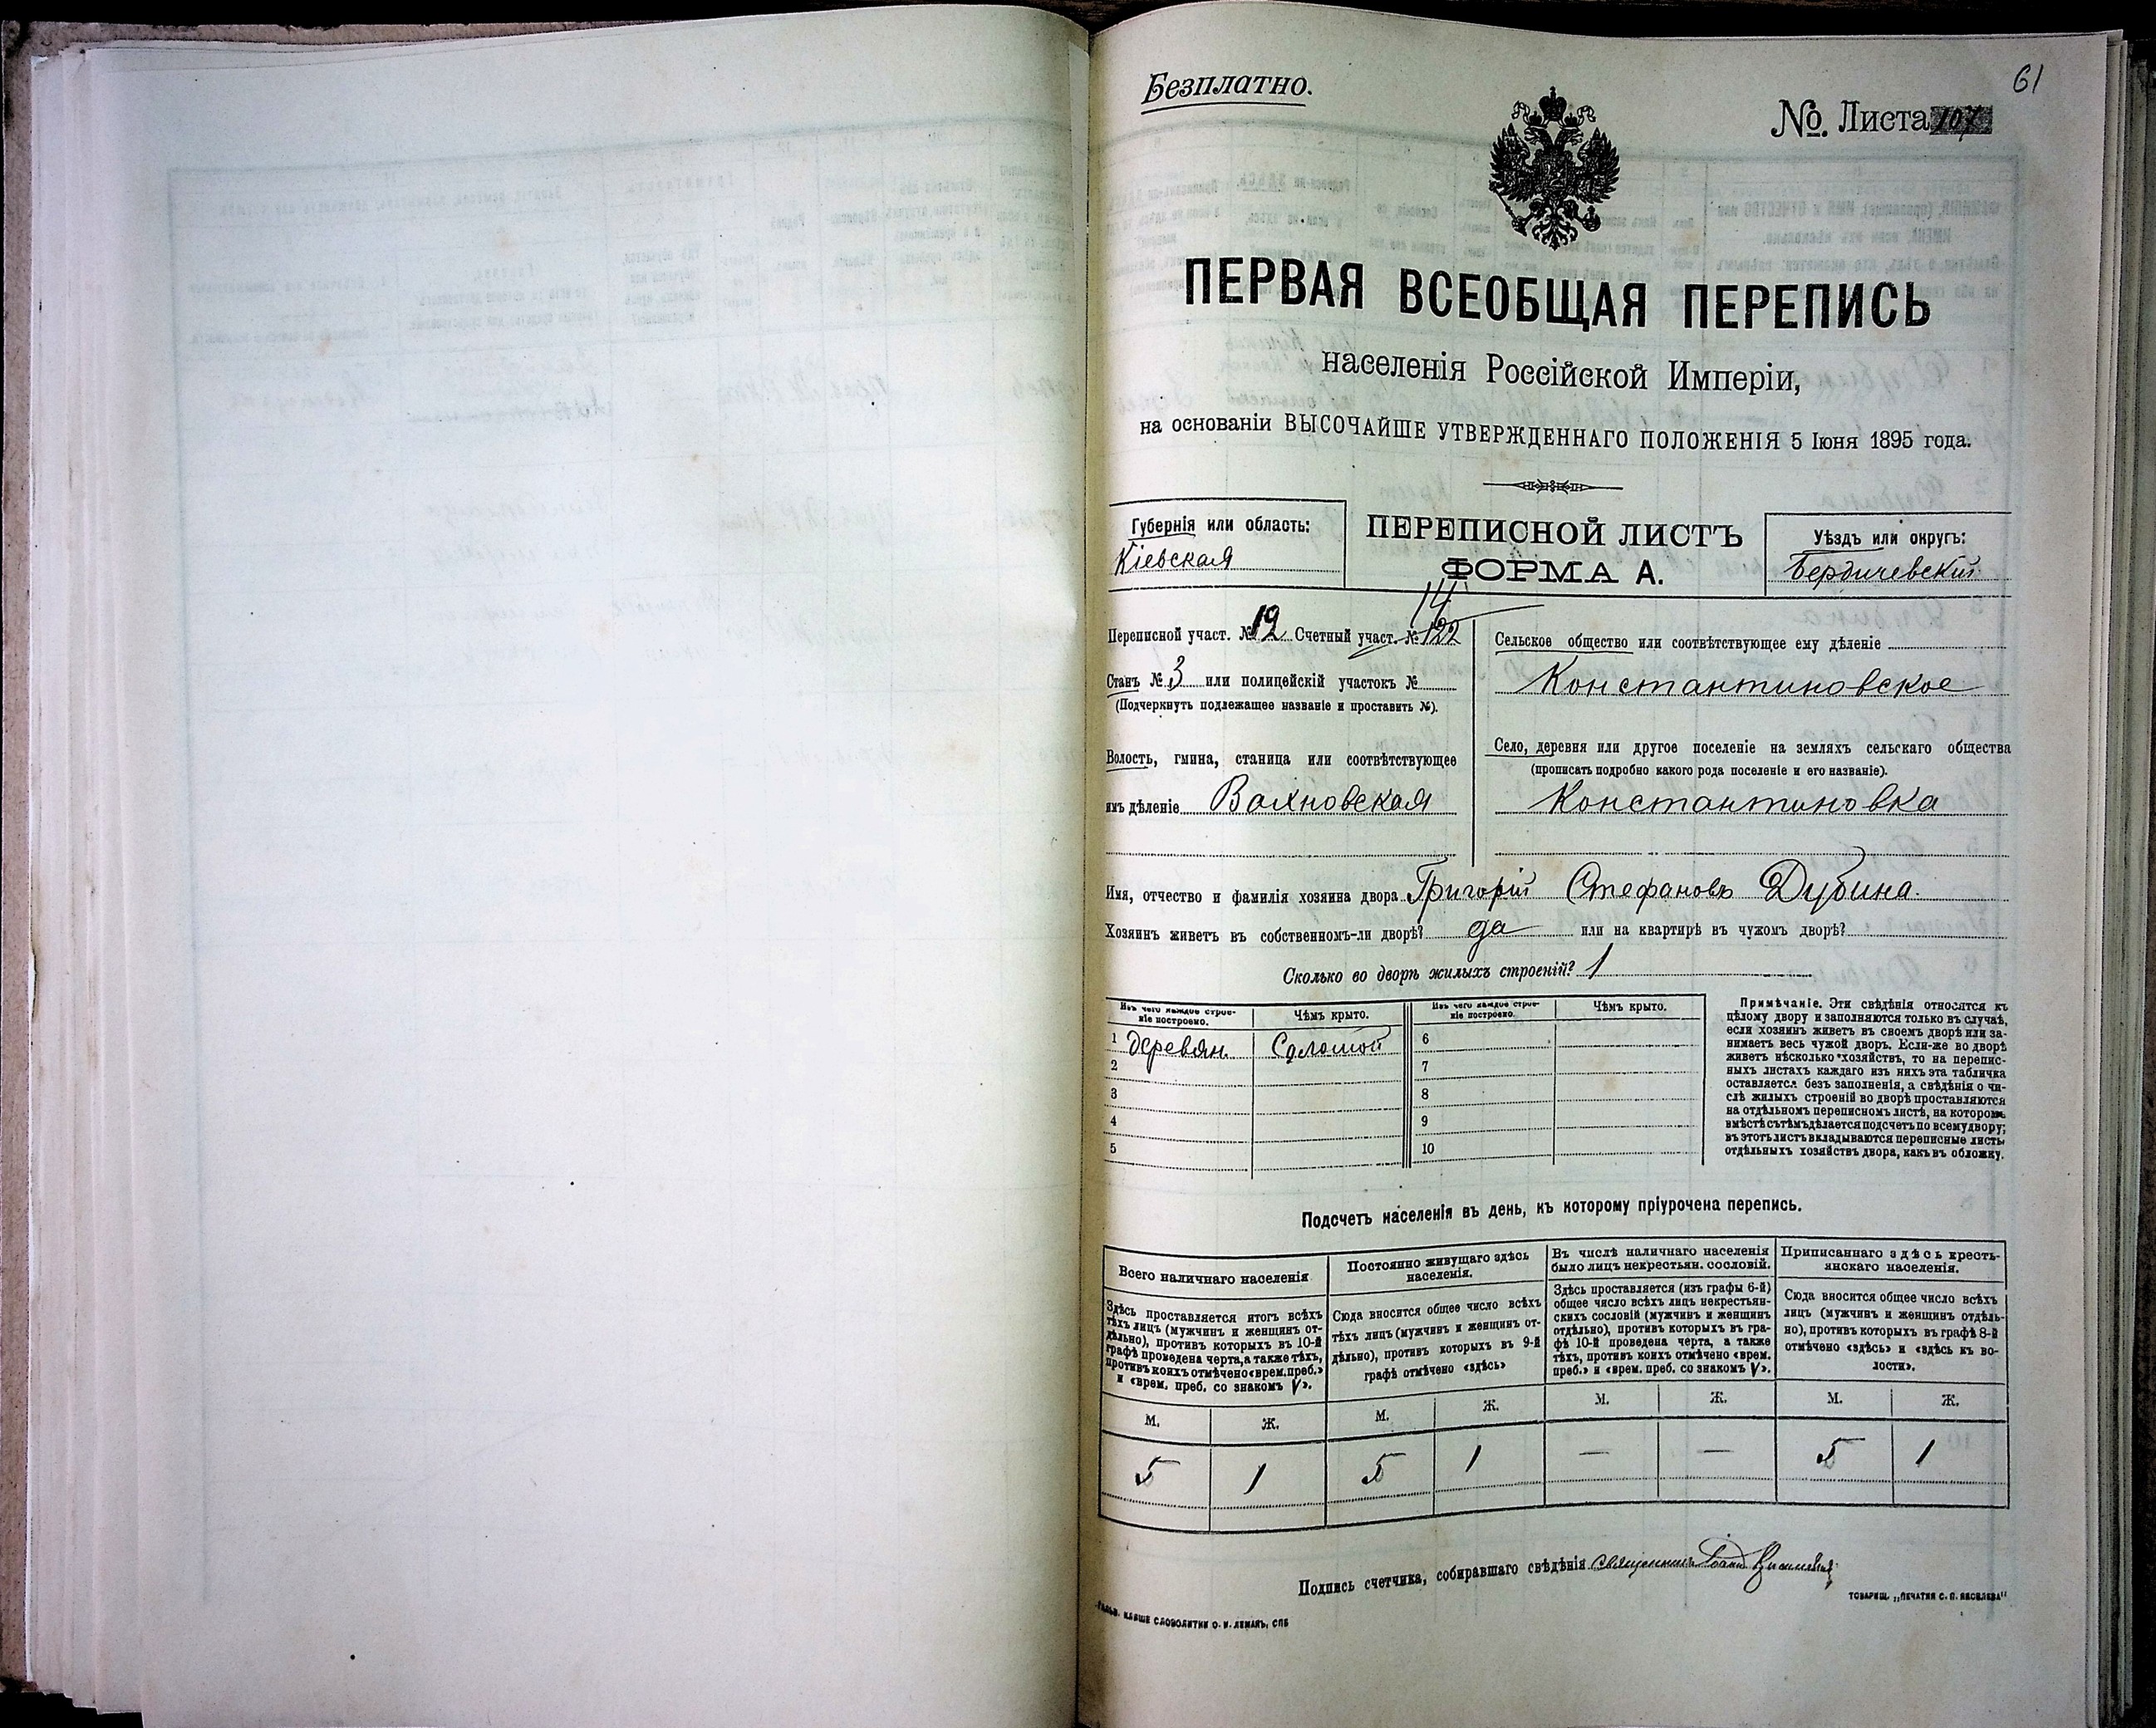 61
Безплатно.
№. Листа 107
ПЕРВАЯ ВСЕОБЩАЯ ПЕРЕПИСЬ
населенія Россійской Имперіи,
на основаніи ВЫСОЧАЙШЕ УТВЕРЖДЕННАГО ПОЛОЖЕНІЯ 5 Іюня 1895 года.
Губернія или область:
Кіевская
ПЕРЕПИСНОЙ ЛИСТЪ
ФОРМА А.
Уѣздъ или округъ:
Бердичевскій
14
Переписной участ. № 12 Счетный участ. № 122
Станъ № 3 или полицейскій участокъ №
(Подчеркнуть подлежащее названіе и проставить №).
Волость, гмина, станица или соотвѣтствующее
имъ дѣленіе Вахновская
Сельское общество или соотвѣтствующее ему дѣленіе
Константиновское
Село, деревня или другое поселеніе на земляхъ сельскаго общества
(прописать подробно какого рода поселеніе и его названіе).
Константиновка
Имя, отчество и фамилія хозяина двора Григорій Стефановъ Дубина.
Хозяинъ живетъ въ собственномъ-ли дворѣ? да или на квартирѣ въ чужомъ дворѣ?
Сколько во дворѣ жилыхъ строеній? 1
Изъ чего каждое строе-
ніе построено.
Чѣмъ крыто.
Изъ чего каждое строе-
ніе построено.
Чѣмъ крыто.
1 деревян. Соломой 6
2 7
3 8
4 9
5 10
Примѣчаніе. Эти свѣдѣнія относятся къ
цѣлому двору и заполняются только въ случаѣ,
если хозяинъ живетъ въ своемъ дворѣ или за-
нимаетъ весь чужой дворъ. Если-же во дворѣ
живетъ нѣсколько хозяйствъ, то на перепис-
ныхъ листахъ каждаго изъ нихъ эта табличка
оставляется безъ заполненія, а свѣдѣнія о чи-
слѣ жилыхъ строеній во дворѣ проставляются
на отдѣльномъ переписномъ листѣ, на которомъ
вмѣстѣ съ тѣмъ дѣлается подсчетъ по всему двору;
въ этотъ листъ вкладываются переписные листы
отдѣльныхъ хозяйствъ двора, какъ въ обложку.
Подсчетъ населенія въ день, къ которому пріурочена перепись.
Всего наличнаго населенія
Здѣсь проставляется итогъ всѣхъ
тѣхъ лицъ (мужчинъ и женщинъ от-
дѣльно), противъ которыхъ въ 10-й
графѣ проведена черта, а также тѣхъ,
противъ коихъ отмѣчено «врем. преб.»
и «врем. преб. со знакомъ V».
Постоянно живущаго здѣсь
населенія.
Сюда вносится общее число всѣхъ
тѣхъ лицъ (мужчинъ и женщинъ от-
дѣльно), противъ которыхъ въ 9-й
графѣ отмѣчено «здѣсь»
Въ числѣ наличнаго населенія
было лицъ некрестьян. сословій.
Здѣсь проставляется (изъ графы 6-й)
общее число всѣхъ лицъ некрестьян-
скихъ сословій (мужчинъ и женщинъ
отдѣльно), противъ которыхъ въ гра-
фѣ 10-й проведена черта, а также
тѣхъ, противъ коихъ отмѣчено «врем.
преб.» и «врем. преб. со знакомъ V».
Приписаннаго здѣсь кресть-
янскаго населенія.
Сюда вносится общее число всѣхъ
лицъ (мужчинъ и женщинъ отдѣль-
но), противъ которыхъ въ графѣ 8-й
отмѣчено «здѣсь» и «здѣсь къ во-
лости».
М. Ж. М. Ж. М. Ж. М. Ж.
5 1 5 1 — — 5 1
Подпись счетчика, собиравшаго свѣдѣнія Священникъ Іоаннъ
ТОВАРИЩ. „ПЕЧАТНЯ С. П. ЯКОВЛЕВА"
СЛОВОЛИТНИ О. И. ЛЕМАНЪ, СПБ